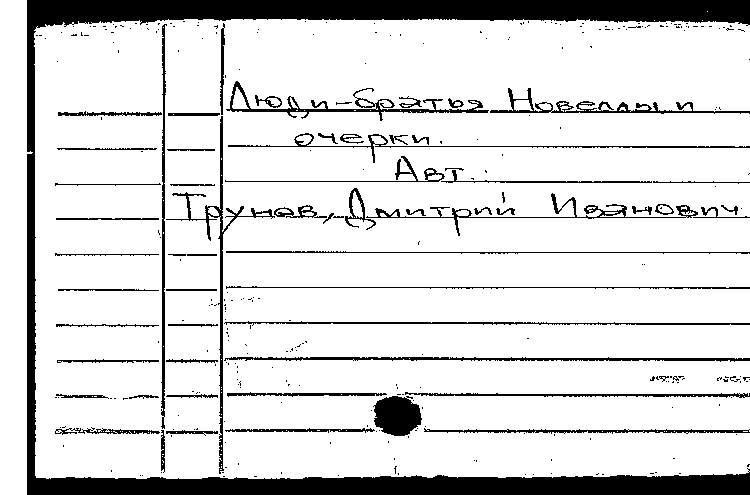 Люди-братья Новеллы и
очерки.
Авт.:
Трунов, Дмитрий Иванович